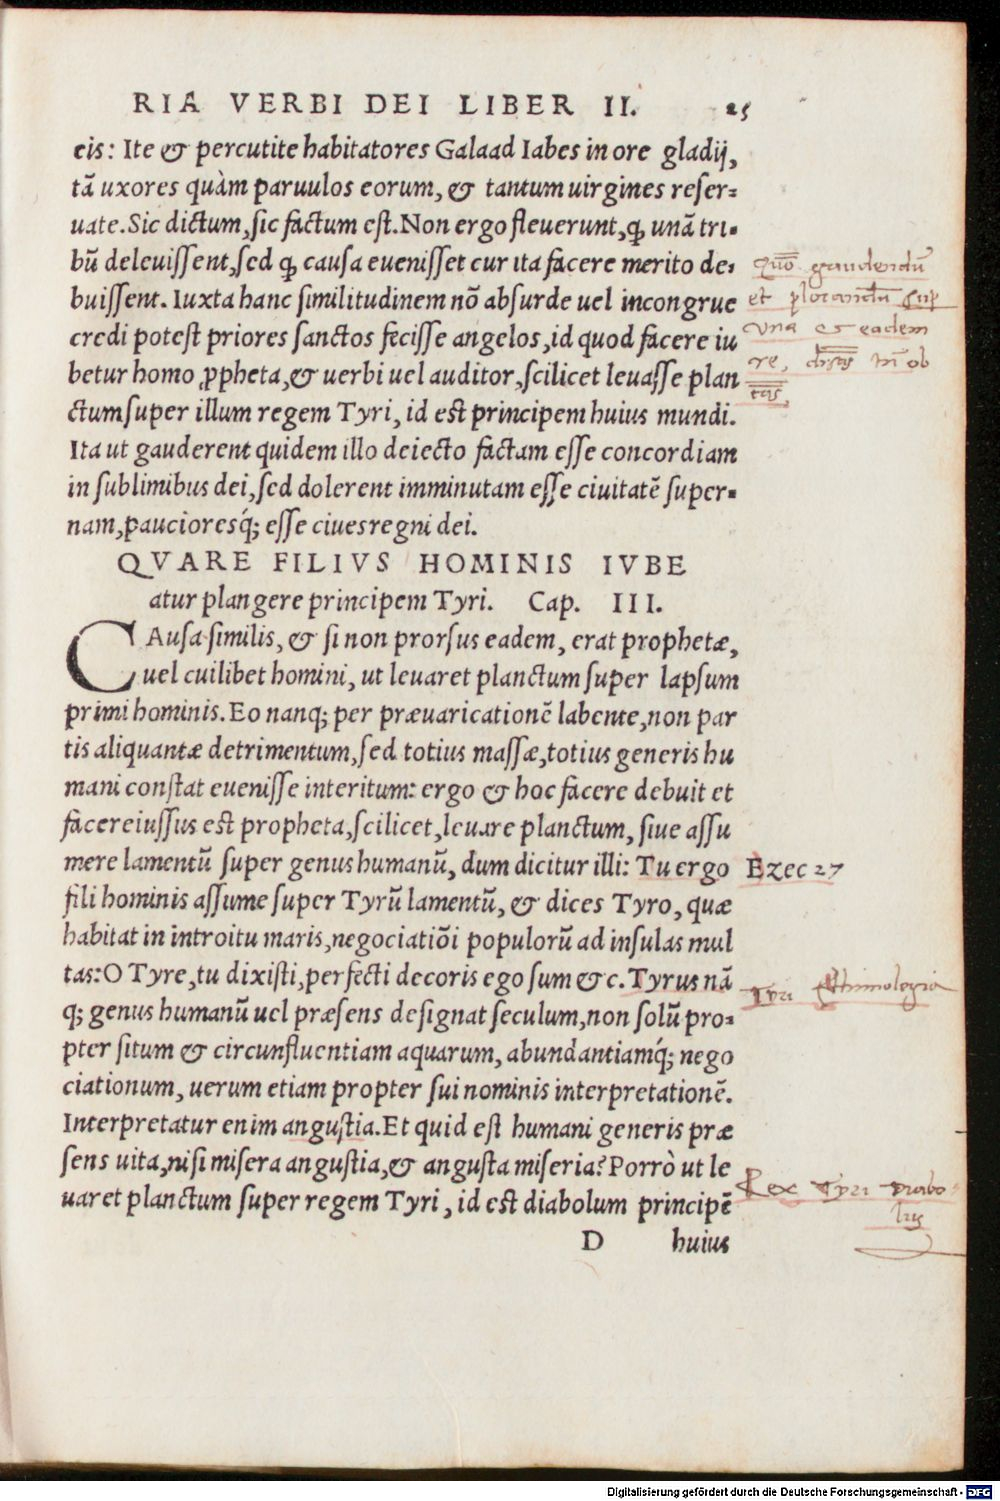 RIA VERBI DEI LIBER II. 25
eis: Ite & percutite habitatores Galaad Iabes in ore gladij,
tā uxores quàm paruulos eorum, & tantum uirgines reser-
uate. Sic dictum, sic factum est. Non ergo fleuerunt, ꝙ unā tri-
bū deleuissent, sed ꝙ causa euenisset cur ita facere merito de-
buissent. Iuxta hanc similitudinem nō absurde uel incongrue
credi potest priores sanctos fecisse angelos, id quod facere iu
betur homo ꝓpheta, & uerbi uel auditor, scilicet leuasse plan
ctum super illum regem Tyri, id est principem huius mundi.
Ita ut gauderent quidem illo deiecto factam esse concordiam
in sublimibus dei, sed dolerent imminutam esse ciuitatē super-
nam, pauciores q́; esse ciues regni dei.
Quō gaudendū
et plorandū sup
una et eadem
re,
QVARE FILIVS HOMINIS IVBE
atur plangere principem Tyri. Cap. III.
CAusa similis, & si non prorsus eadem, erat prophetæ,
uel cuilibet homini, ut leuaret planctum super lapsum
primi hominis. Eo nanq; per præuaricationē labente, non par
tis aliquantæ detrimentum, sed totius massæ, totius generis hu
mani constat euenisse interitum: ergo & hoc facere debuit et
facere iussus est propheta, scilicet, leuare planctum, siue assu
mere lamentū super genus humanū, dum dicitur illi: Tu ergo
fili hominis assume super Tyrū lamentū, & dices Tyro, quæ
habitat in introitu maris, negociatiōi populorū ad insulas mul
tas: O Tyre, tu dixisti, perfecti decoris ego sum & c. Tyrus nā
q; genus humanū uel præsens designat seculum, non solū pro-
pter situm & circunfluentiam aquarum, abundantiam q́; nego
ciationum, uerum etiam propter sui nominis interpretationē.
Interpretatur enim angustia. Et quid est humani generis præ
sens uita, nisi misera angustia, & angusta miseria? Porrò ut le
uaret planctum super regem Tyri, id est diabolum principē
Ezec 27
Tyri Ethimologia
Rex Tyri diabo-
lus
D huius
Digitalisierung gefördert durch die Deutsche Forschungsgemeinschaft - DFG